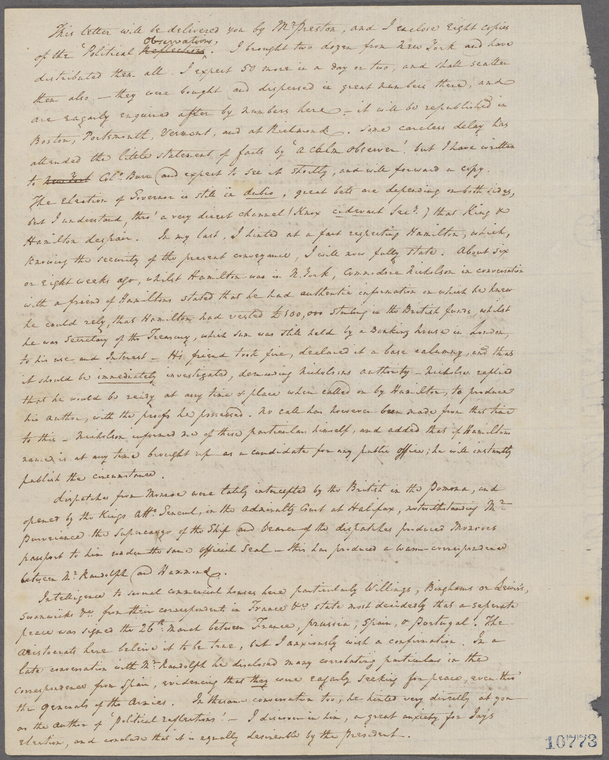 This letter will be delivered you by Mr Preston, and I enclose Eight copies
of the "Political Reflections Observations". I brought two dozen from New York and have
distributed them all. I expect 50 more in a day or two, and shall scatter
them also — they were bought and dispersed in great numbers there, and
are eagerly enquired after by numbers here — it will be republished in
Boston, Portsmouth, Vermont, and at Richmond. Some careless delay has
attended the little statement of facts by "a Calm Observer" but I have written
to New York Colo. Burr (and expect to see it shortly, and will forward a copy.
The Election of Governor is still in dubio, great bets are depending on both sides,
but I understand, thro' a very direct channel (Knox cidevant Secy.) that King &
Hamilton despair. In my last, I hinted at a fact respecting Hamilton, which,
knowing the security of the present conveyance, I will now fully state. About six
or eight weeks ago, whilst Hamilton was in N. York, Commodore Nicholson in conversation
with a friend of Hamiltons stated that he had authentic information on which he knew
he could rely, that Hamilton had vested £100,000 sterling in the British funds, whilst
he was Secretary of the Treasury, which sum was still held by a Banking house in London,
to his use and Interest — His friend took fire, declared it a base calumny, and that
it should be immediately investigated, demanding Nicholsons authority — Nicholson replied
that he would be ready at any time or place when called on by Hamilton, to produce
his author, with the proofs he possessed. No call has however been made from that time
to this — Nicholson informed me of these particulars himself, and added that if Hamiltons
name is at any time brought up as a candidate for any public office, he will instantly
publish the circumstance.
Dispatches from Monroe were lately intercepted by the British in the Pomona, and
opened by the Kings Atty General, in the Admiralty Court at Halifax, notwithstanding Mr
the Supercargo of the Ship and bearer of the dispatches produced Monroes
passport to him under the same official Seal — this has produced a warm correspondence
between Mr Randolph (and Hammond.
Intelligence to several commercial houses here particularly Willings, Binghams or
Swanwicks &c from their correspondents in France &c state most decidedly that a seperate
peace was signed the 26th March between France, Prussia, Spain, & Portugal. The
aristocrats here believe it to be true, but I anxiously wish a confirmation. In a
late conversation with Mr Randolph he disclosed many corrobating particulars in the
correspondence from Spain, evidencing that they were eagerly seeking for peace, even thro'
the Generals of the Armies. In the same conversation too, he hinted very directly at you
as the author of "Political reflections" — I discover in him, a great anxiety for Jay's
Election, and conclude that it is equally desireable by the President —
10773